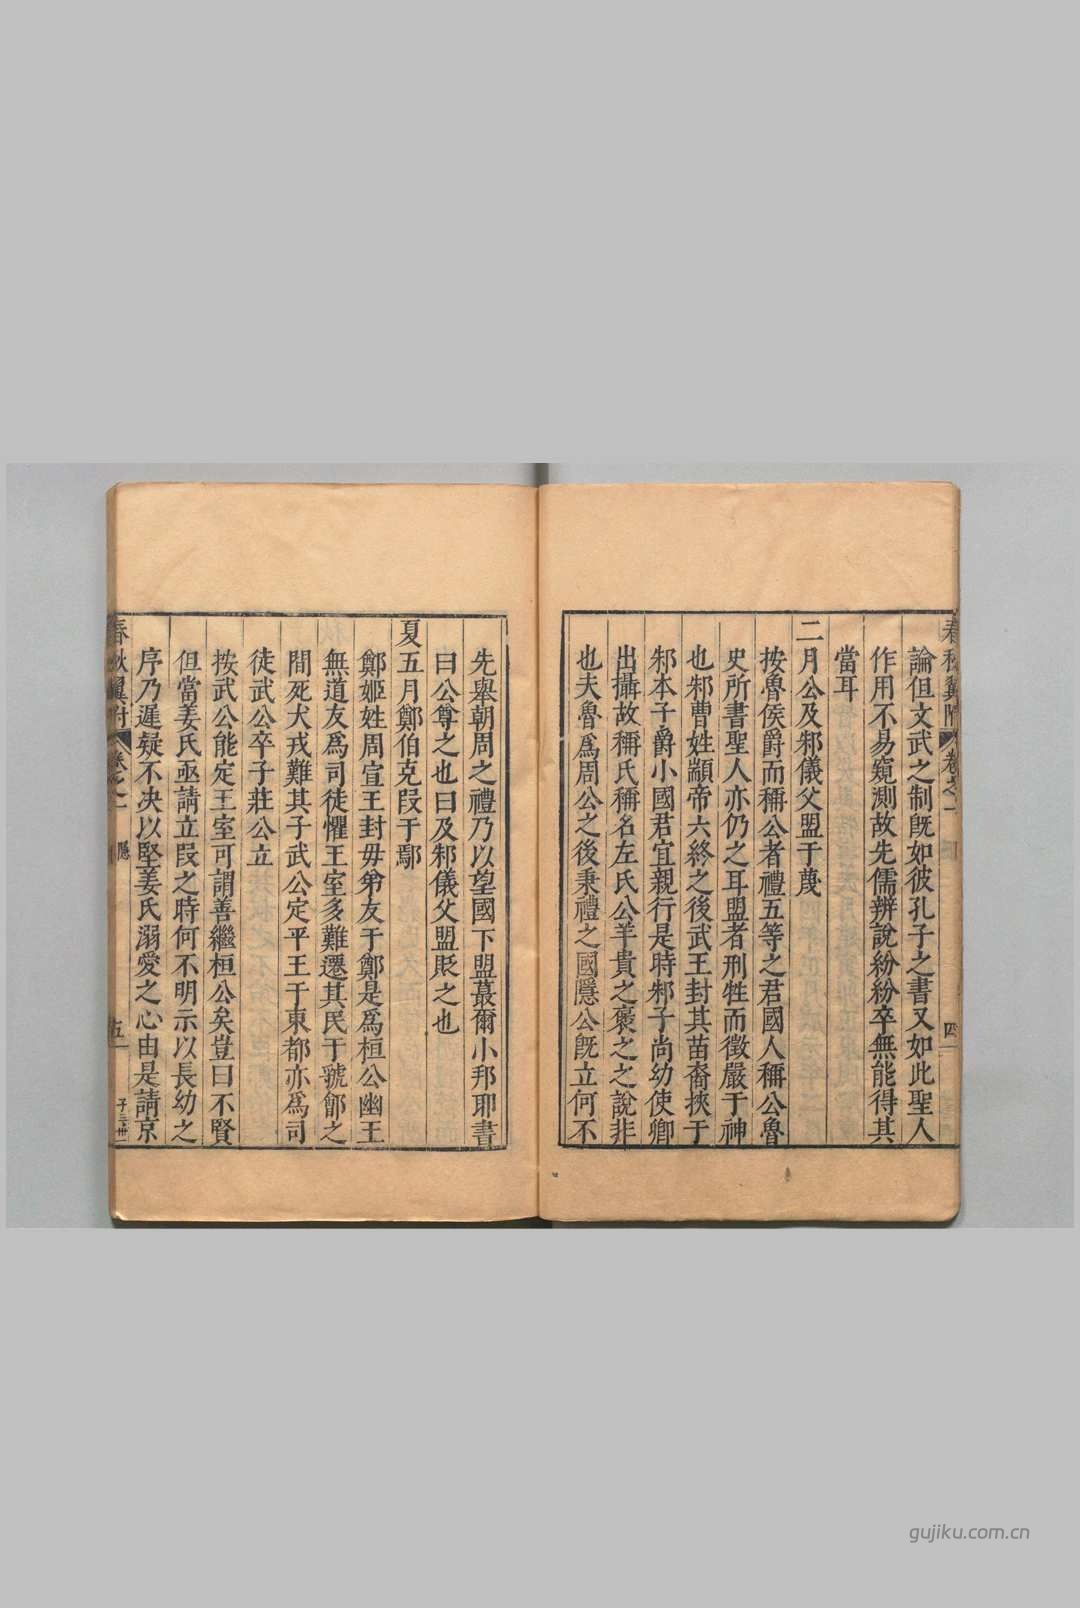 論但文武之制既如彼孔子之書又如此聖人
作用不易窺測故先儒辨說紛紛卒無能得其
當耳
二月公及邾儀父盟于蔑
按魯侯爵而稱公者禮五等之君國人稱公魯
史所書聖人亦仍之耳盟者刑牲而徵嚴于神
也邾曹姓顓帝六終之後武王封其苗裔挾于
邾本子爵小國君宜親行是時邾子尚幼使卿
出攝故稱氏稱名左氏公羊貴之褒之之說非
也夫魯爲周公之後秉禮之國隱公旣立何不
先舉朝周之禮乃以望國下盟蕞爾小邦耶書
曰公尊之也曰及邾儀父盟貶之也
夏五月鄭伯克段于鄢
鄭姬姓周宣王封毋弟友于鄭是爲桓公幽王
無道友爲司徒懼王室多難遷其民于虢鄶之
間死犬戎難其子武公定平王于東都亦爲司
徒武公卒子莊公立
按武公能定王室可謂善繼桓公矣豈曰不賢
但當姜氏亟請立段之時何不明示以長幼之
序乃遲疑不决以堅姜氏溺愛之心由是請京
春秋翼附 卷之一 四
春秋翼附 卷之一 隱 五 子三卅
gujiku.com.cn